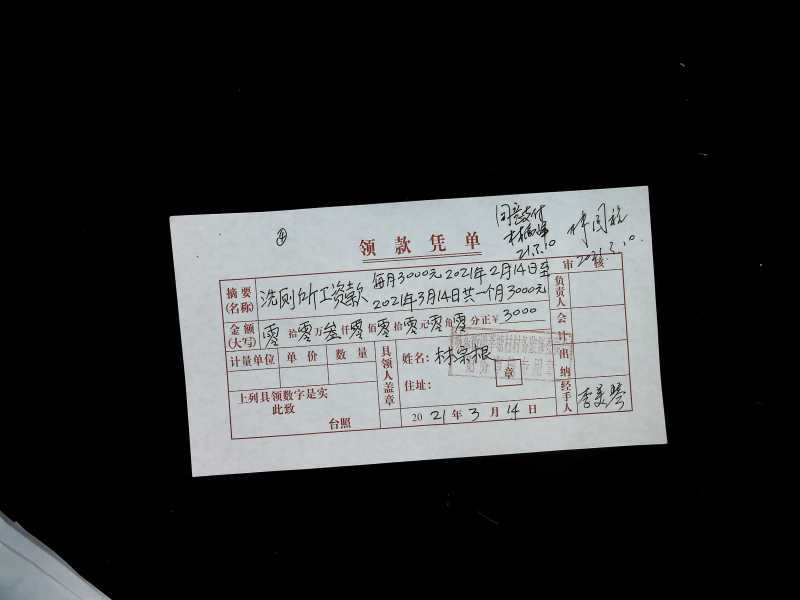 ④
同意支付
21.5.10
2021.5.10.
领款凭单
摘要
(名称)
洗厕所工资款
每月3000元2021年2月14日至
2021年3月14日共一个月3000元
审核
金额
(大写)
零拾零万叁仟零佰零拾零元零角零分正¥3000
负责人
计量单位 单价 数量
会计
具领人盖章
姓名：林宗根
住址：
章
出纳
上列具领数字是实
此致
台照
2021年3月14日
经手人